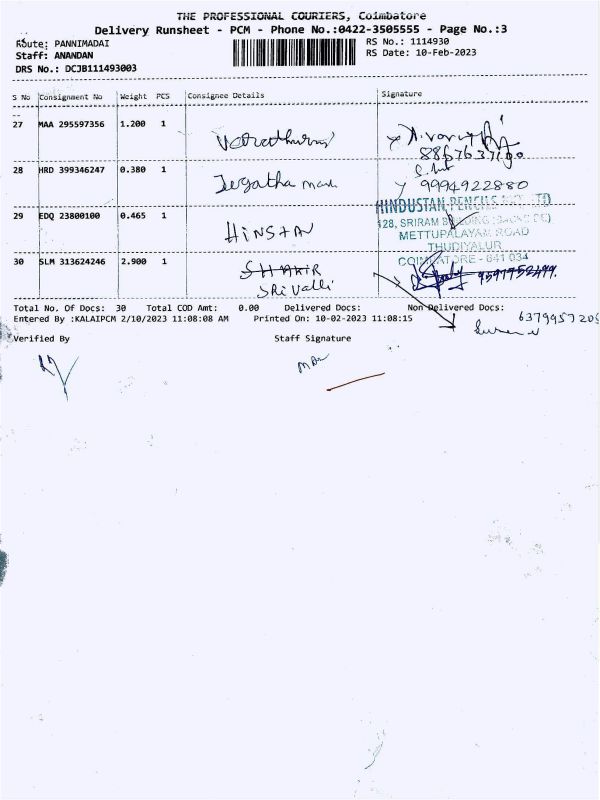 THE PROFESSIONAL COURIERS, Coimbatore
Delivery Runsheet - PCM - Phone No.:0422-3505555 - Page No.:3
Route: PANNIMADAI
RS No.: 1114930
Staff: ANANDAN
RS Date: 10-Feb-2023
DRS No.: DCJB111493003
S No Consignment No Weight PCS Consignee Details Signature
27 MAA 295597356 1.200 1
28 HRD 399346247 0.380 1
9994922880
29 EDQ 23800100 0.465 1 HINSTAN
HINDUSTAN PENCILS PVT. LTD
128, SRIRAM BUILDING
METTUPALAYAM ROAD
THUDIYALUR
COIMBATORE - 641 034
30 SLM 313624246 2.900 1
Srivalli
Total No. Of Docs: 30 Total COD Amt: 0.00 Delivered Docs: Non Delivered Docs:
Entered By :KALAIPCM 2/10/2023 11:08:08 AM Printed On: 10-02-2023 11:08:15
Verified By Staff Signature